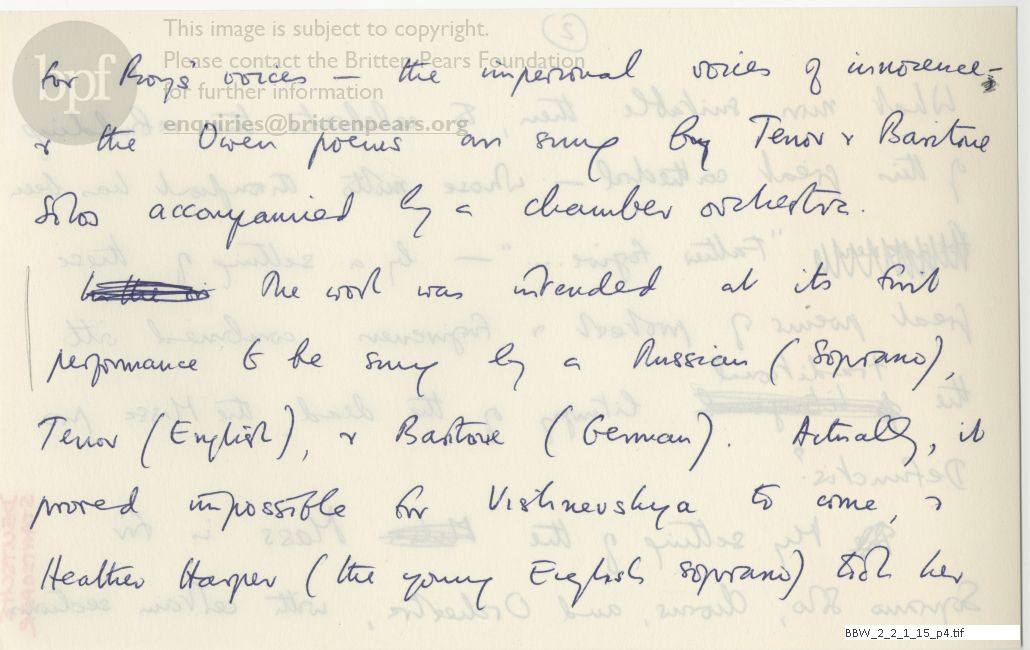 This image is subject to copyright.
Please contact the Britten Pears Foundation
for further information
enquiries@brittenpears.org
bpf
(2)
for Boys' voices — the impersonal voices of innocence –
& the Owen poems are sung by Tenor & Baritone
Solos accompanied by a chamber orchestra.
The work was intended at its first
performance to be sung by a Russian (Soprano),
Tenor (English), & Baritone (German). Actually, it
proved impossible for Vishnevskya to come, &
Heather Harper (the young English soprano) took her
BBW_2_2_1_15_p4.tif